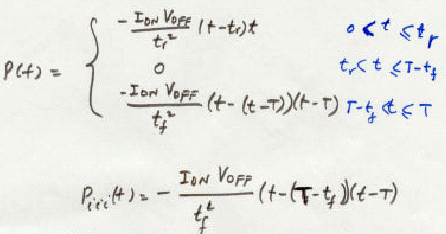 P(t) = { - I_ON V_OFF / t_r² (t-t_r)t    0 < t ≤ t_r
0    t_r < t ≤ T-t_f
- I_ON V_OFF / t_f² (t-(t-T))(t-T)    T-t_f < t ≤ T
P_iii(t) = - I_ON V_OFF / t_f² (t-(T-t_f))(t-T)